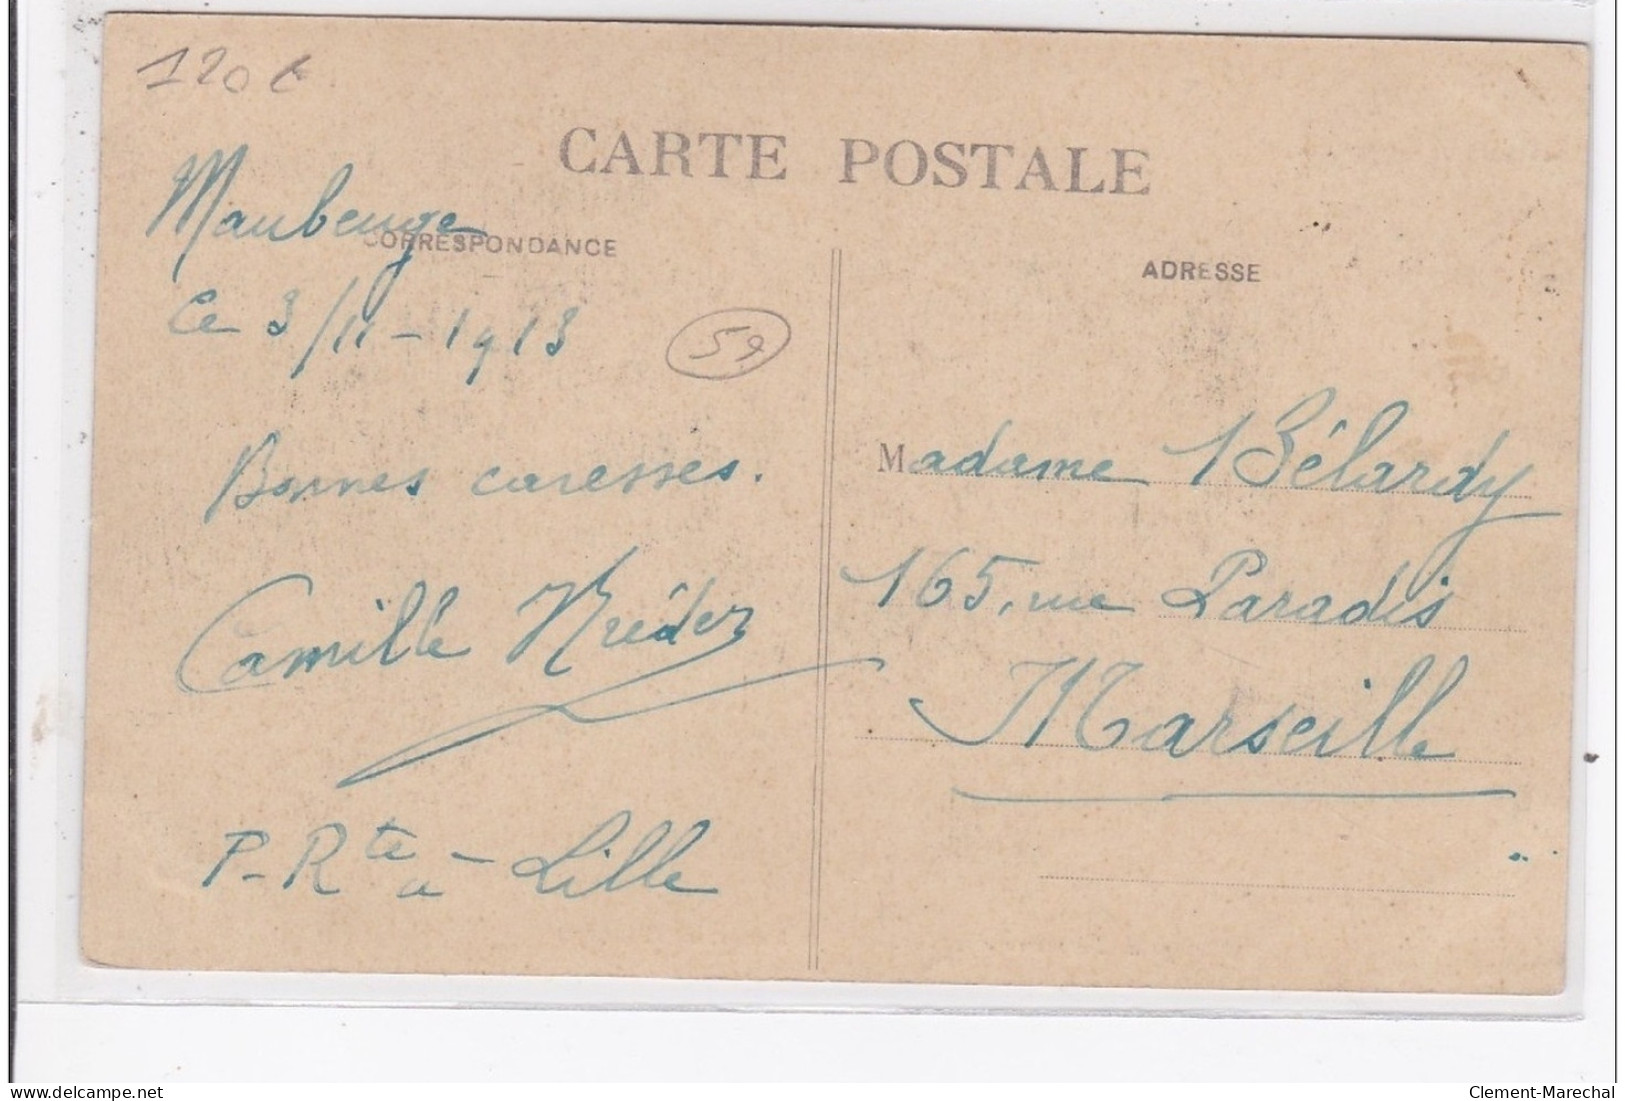 120 €
CARTE POSTALE
Maubeuge
CORRESPONDANCE
ADRESSE
Ce 3/11-1913
59
Bonnes caresses.
Camille Kréder
P-Rte à - Lille
Madame Bélardy
165, rue Paradis
Marseille
delcampe.net
Clement-Marechal